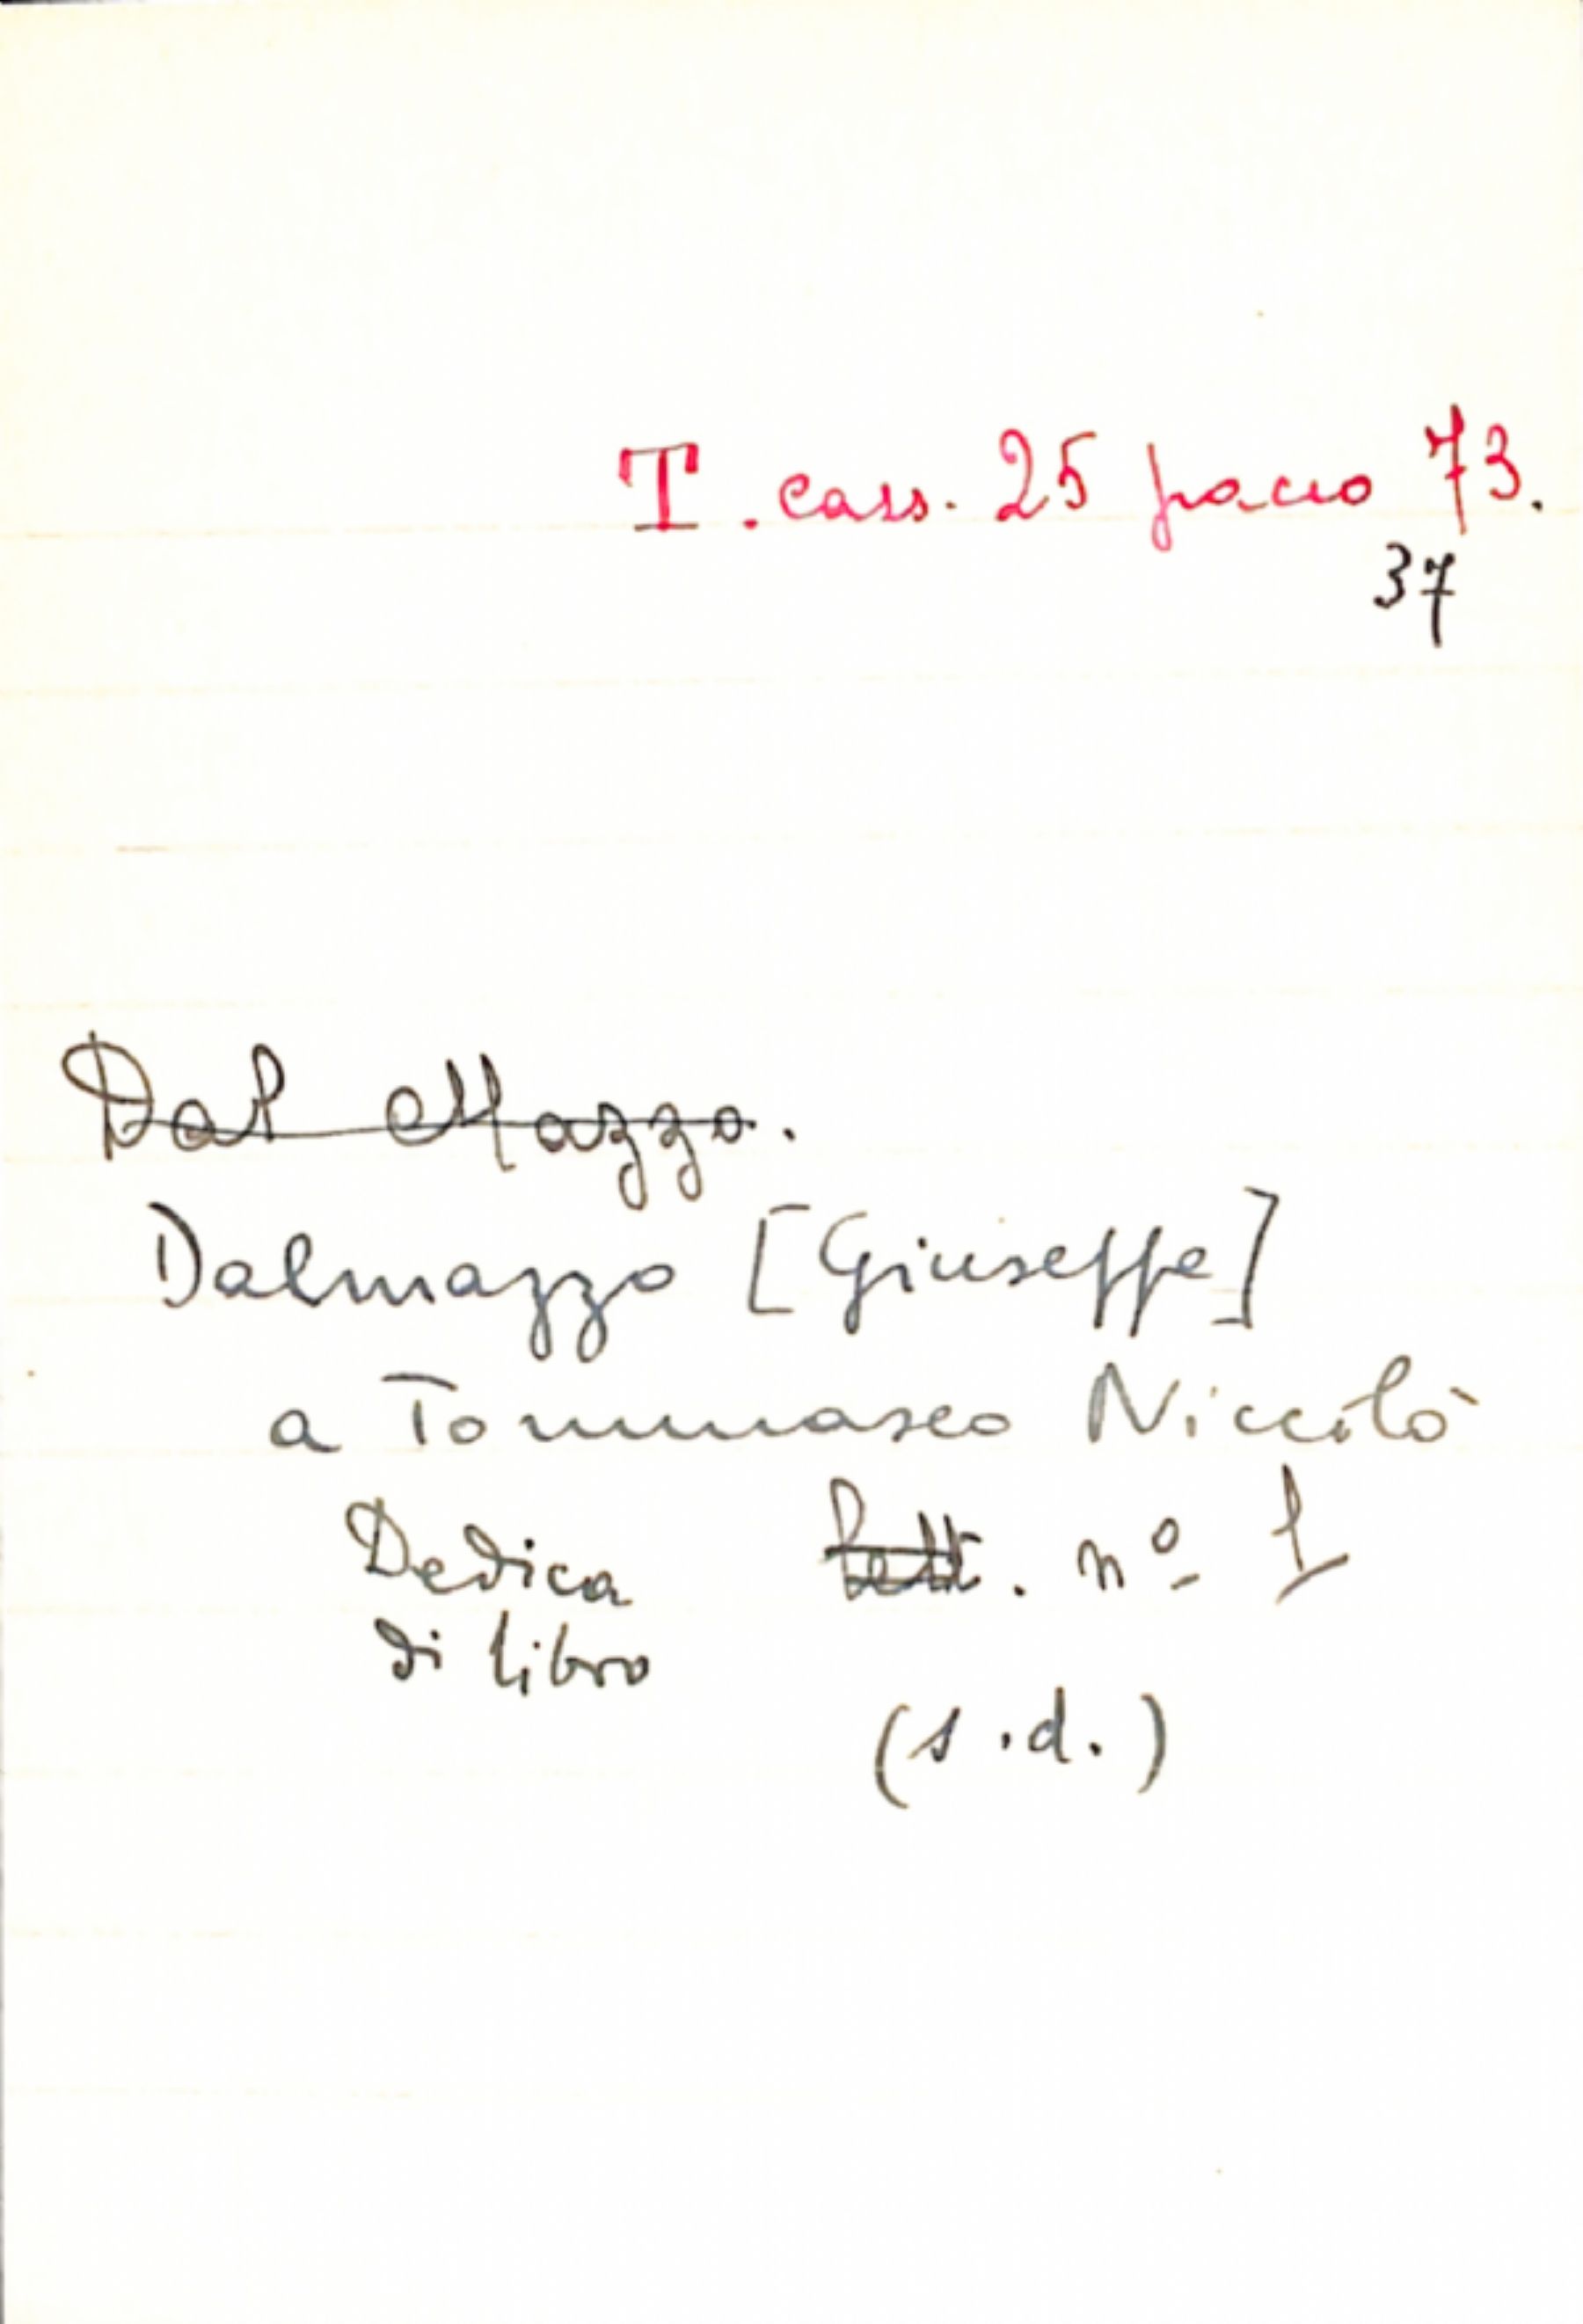 T. cass. 25 pacco 73.
37
Dal Mazzo.
Dalmazzo [Giuseppe]
a Tommaseo Niccolò
Dedica Lett. nº 1
di libro
(s.d.)